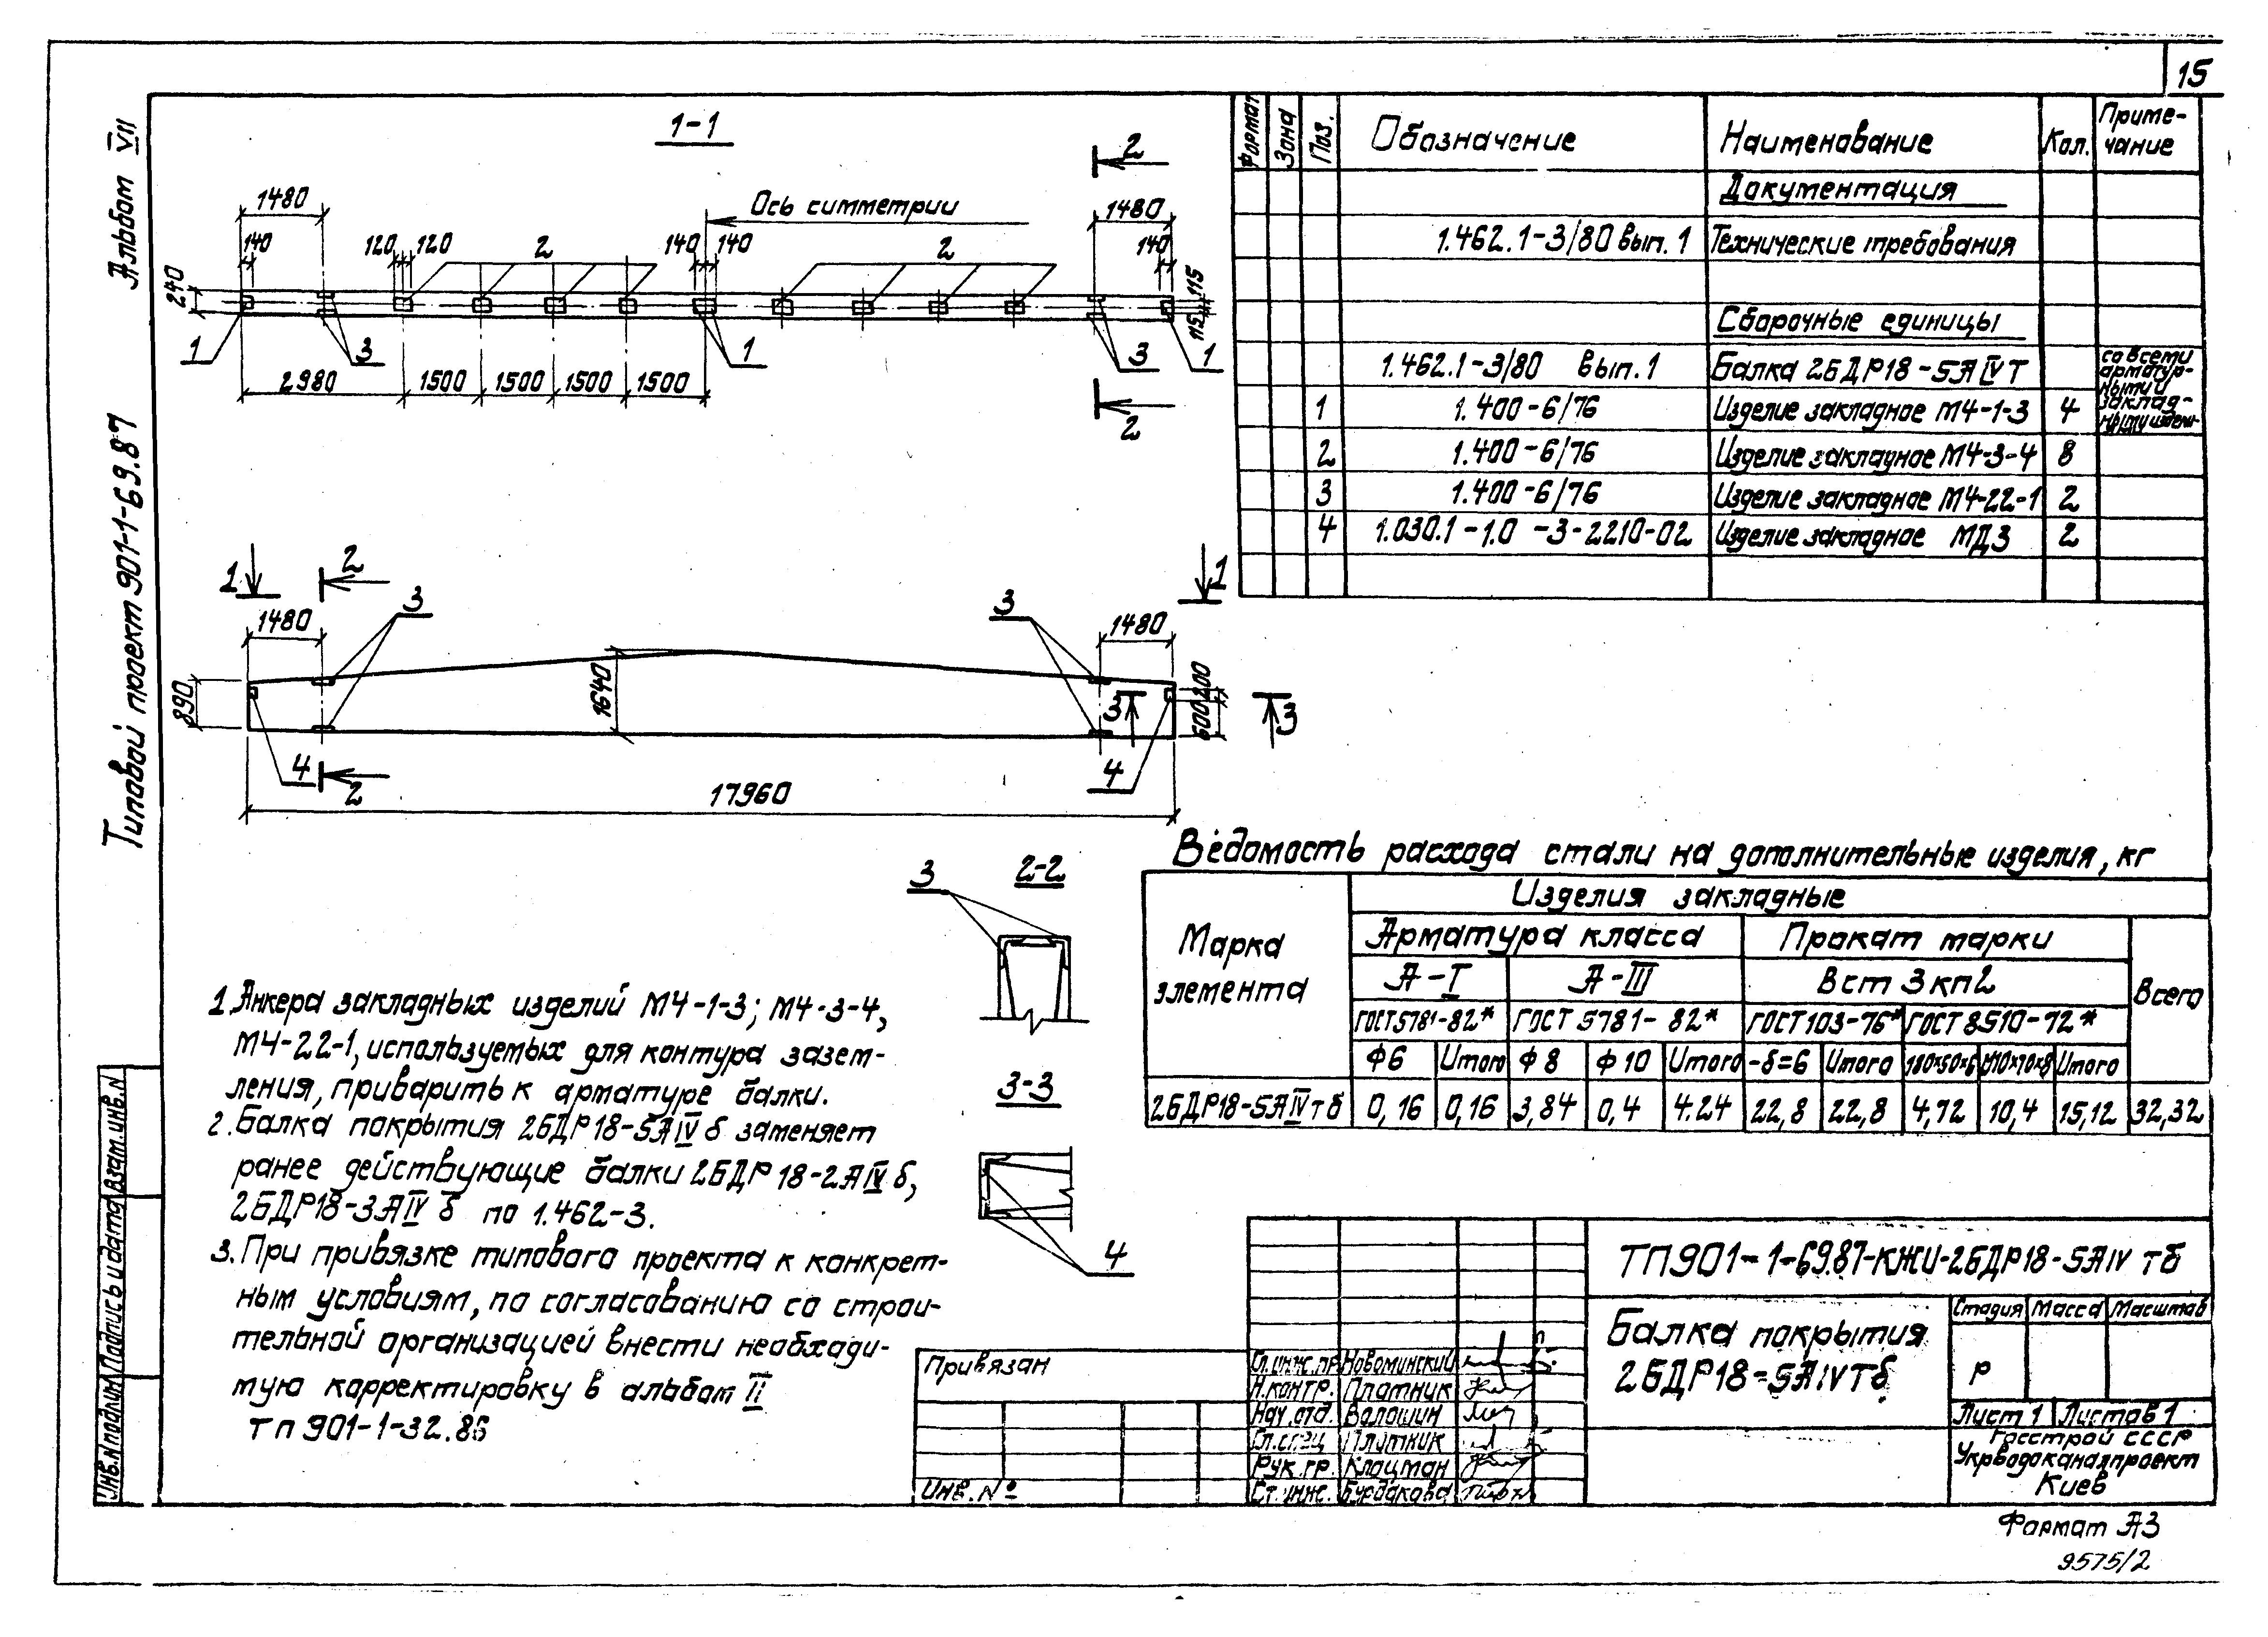 15
Альбом VII
Типовой проект 901-1-69.87
1-1
2
1480
Ось симметрии
1480
140
120
120
2
140
140
2
140
240
115
115
1
3
1
3
1
2980
1500
1500
1500
1500
2
Формат
Зона
Поз.
Обозначение
Наименование
Кол.
Приме-
чание
Документация
1.462.1-3/80 вып. 1
Технические требования
Сборочные единицы
1.462.1-3/80 вып. 1
Балка 2БДР18-5АIVТ
со всеми
арматур-
ными и
заклад-
1
1.400-6/76
Изделие закладное М4-1-3
4
2
1.400-6/76
Изделие закладное М4-3-4
8
3
1.400-6/76
Изделие закладное М4-22-1
2
4
1.030.1-1.0 -3-2210-02
Изделие закладное МД3
2
1
2
3
3
1
1480
1480
890
1640
200
600
3
3
4
2
4
17960
Ведомость расхода стали на дополнительные изделия, кг
Марка
элемента
Изделия закладные
Арматура класса
Прокат марки
Всего
А-I
А-III
Вст 3 кп2
ГОСТ 5781-82*
ГОСТ 5781-82*
ГОСТ 103-76*
ГОСТ 8510-72*
Ф6
Итого
Ф8
Ф10
Итого
-δ=6
Итого
Итого
2БДР18-5АIVтб
0,16
0,16
3,84
0,4
4.24
22,8
22,8
4,72
10,4
15,12
32,32
3
2-2
3-3
4
1. Анкера закладных изделий М4-1-3; М4-3-4,
М4-22-1, используемых для контура зазем-
ления, приварить к арматуре балки.
2. Балка покрытия 2БДР18-5АIVб заменяет
ранее действующие балки 2БДР18-2АIVб,
2БДР18-3АIVб по 1.462-3.
3. При привязке типового проекта к конкрет-
ным условиям, по согласованию со строи-
тельной организацией внести необходи-
мую корректировку в альбом II
тп 901-1-32.86
Инв.N подлин
Подпись и дата
Взам.инв.N
Привязан
Инв. №
Гл.инж.пр
Новоминский
Н.контр.
Платник
Нач.отд.
Волошин
Гл.спец
Платник
Рук.гр.
Клоцман
Ст.инж.
Бурдакова
ТП901-1-69.87-КЖИ-2БДР18-5АIVтб
Балка покрытия
2БДР18-5АIVТб
Стадия
Масса
Масштаб
Р
Лист 1
Листов 1
Госстрой СССР
Укрводоканалпроект
Киев
Формат А3
9575/2